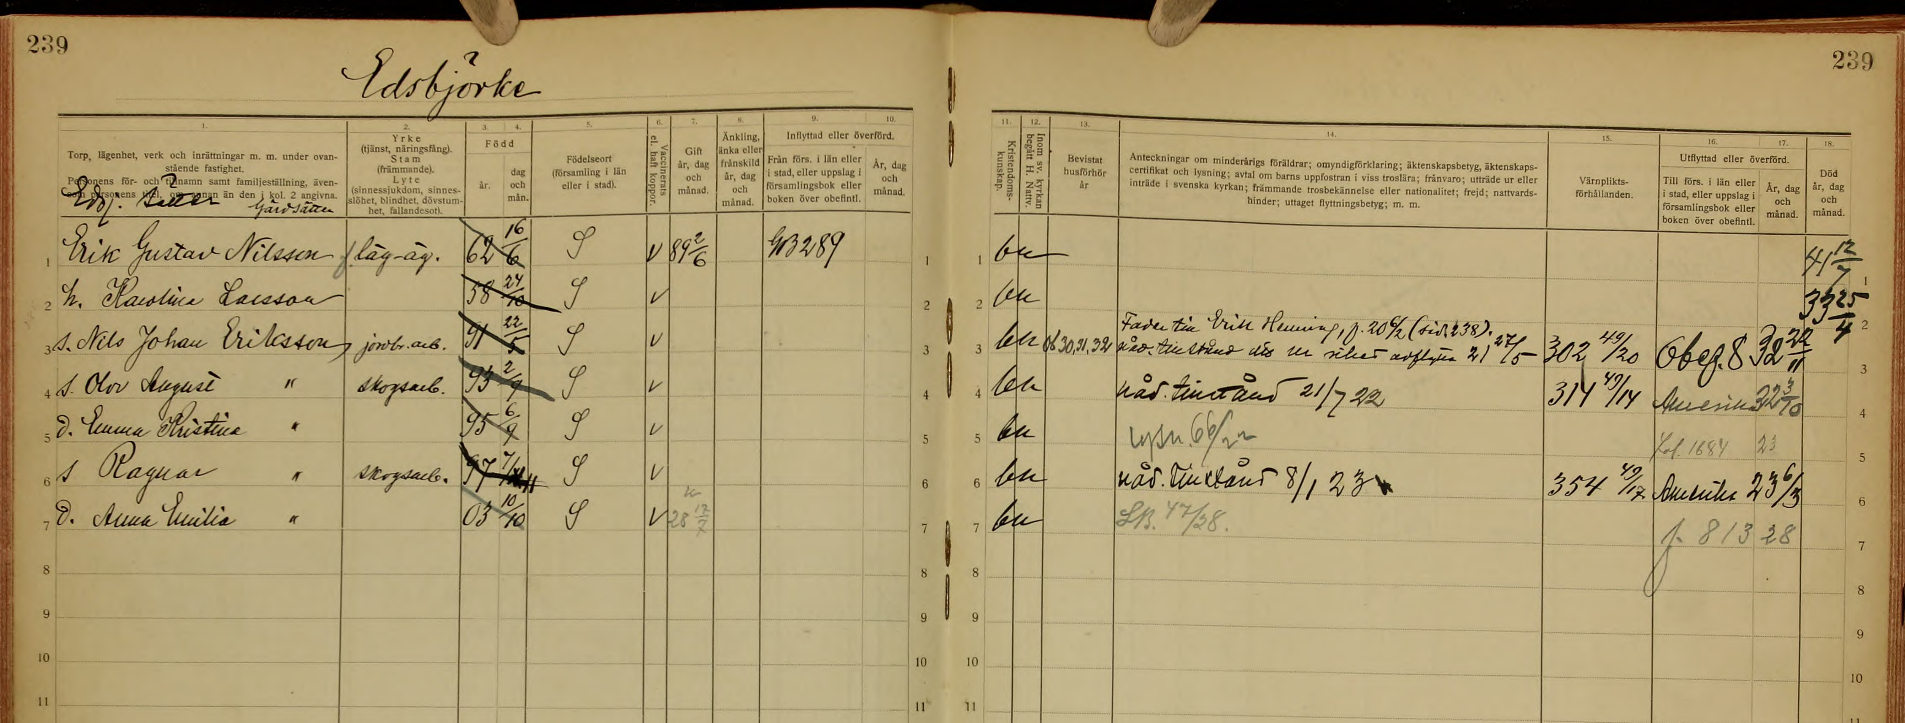 239
239
Edsbjörke
1.
2.
3.
4.
5.
6.
7.
8.
9.
10.
Torp, lägenhet, verk och inrättningar m. m. under ovan-
stående fastighet.
Personens för- och tillnamn samt familjeställning, även-
Yrke
(tjänst, näringsfång).
Stam
(främmande).
Lyte
(sinnessjukdom, sinnes-
slöhet, blindhet, dövstum-
het, fallandesot).
Född
år.
dag
och
mån.
Födelseort
(församling i län
eller i stad).
Vaccinerats
el. haft koppor.
Gift
år, dag
och
månad.
Änkling,
änka eller
frånskild
år, dag
och
månad.
Inflyttad eller överförd.
Från förs. i län eller
i stad, eller uppslag i
församlingsbok eller
boken över obefintl.
År, dag
och
månad.
Gärdsätter
11.
12.
13.
14.
15.
16.
17.
18.
Kristendoms-
kunskap.
Inom sv. kyrkan
begått H. Nattv.
Bevistat
husförhör
år
Anteckningar om minderårigs föräldrar; omyndigförklaring; äktenskapsbetyg, äktenskaps-
certifikat och lysning; avtal om barns uppfostran i viss troslära; frånvaro; utträde ur eller
inträde i svenska kyrkan; främmande trosbekännelse eller nationalitet; frejd; nattvards-
hinder; uttaget flyttningsbetyg; m. m.
Värnplikts-
förhållanden.
Utflyttad eller överförd.
Till förs. i län eller
i stad, eller uppslag i
församlingsbok eller
boken över obefintl.
År, dag
och
månad.
Död
år, dag
och
månad.
1 Erik Gustav Nilsson f. läg-äg. 62 16/6 S v 89 2/6 GB 289 1
1 bn 41 12/7 1
2 h. Karolina Larsson 58 24/10 S v 2
2 bn 33 25/4 2
3 s. Nils Johan Eriksson, jordbr.arb. 91 22/5 S v 3
Fader till Erik Henning, f. 20 6/2 (sid. 238).
3 bn 30, 31, 32 21 27/5 302 49/20 Obef. 8 32 22/11 3
4 s. Olov August " skogsarb. 93 2/9 S v 4
4 bn nåd. tillstånd 21/7 22 314 49/14 Amerika 22 3/10 4
5 d. Emma Kristina " 95 6/9 S v 5
5 bn lysn. 66/22 1684 23 5
6 s Ragnar " skogsarb. 97 7/11 S v 6
6 bn nåd. tillstånd 8/1 23 354 49/17 Amerika 23 6/3 6
7 d. Anna Emilia " 03 10/10 S v 28 17/7 7
7 bn LB. 47/28. f. 813 28 7
8 8
8 8
9 9
9 9
10 10
10 10
11 11
11 11